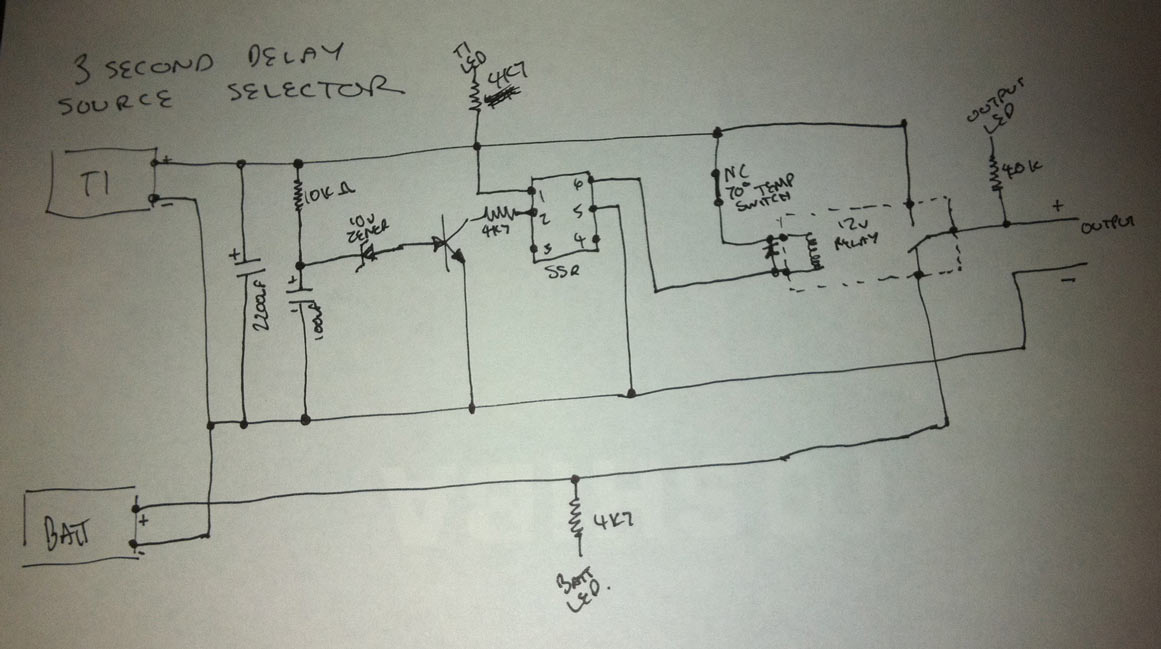 3 SECOND DELAY
SOURCE SELECTOR
T1
LED
4K7
T1
+
-
10KΩ
10V
ZENER
4K7
1
2
3
6
5
4
SSR
NC
70° TEMP
SWITCH
12V
RELAY
OUTPUT
LED
40K
+
OUTPUT
-
+
2200uF
+
-
100uF
BATT
+
-
4K7
BATT
LED.